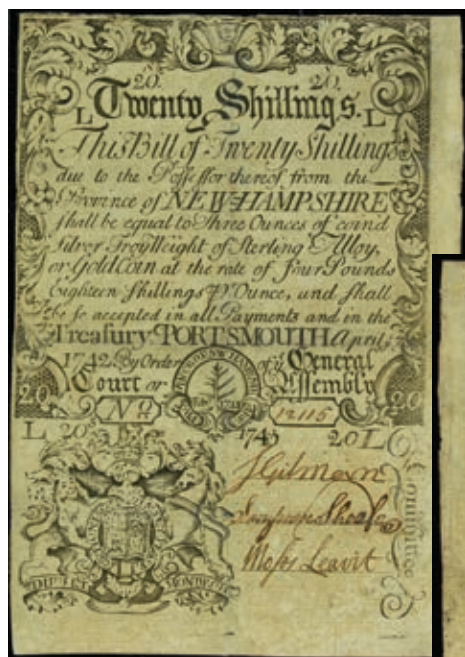 20. 20.
L Twenty Shillings. L
This Bill of Twenty Shillings
due to the Possessor thereof from the
Province of NEW-HAMPSHIRE
shall be equal to Three Ounces of coin'd
Silver TroyWeight of Sterling Alloy,
or Gold Coin at the rate of four Pounds
Eighteen Shillings Ounce, and shall
be so accepted in all Payments and in the
Treasury PORTSMOUTH April
1742. By Order of ye General
Court or Assembly
20 No 12115 20
L 20 1743 20 L
J Gilman
Sheafe
Moses Leavit
DIEU ET MON DROIT